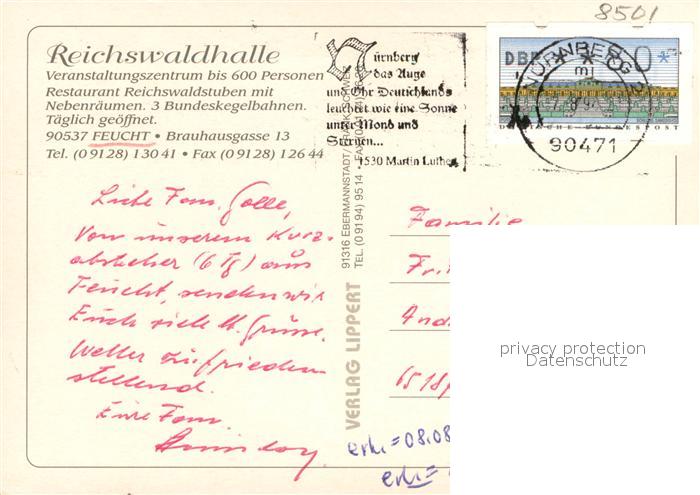 8501
Reichswaldhalle
Veranstaltungszentrum bis 600 Personen
Restaurant Reichswaldstuben mit
Nebenräumen. 3 Bundeskegelbahnen.
Täglich geöffnet.
90537 FEUCHT • Brauhausgasse 13
Tel. (0 91 28) 130 41 • Fax (0 91 28) 126 44
Nürnberg
das Auge
und Ohr Deutschlands
leuchtet wie eine Sonne
unter Mond und
Sternen...
1530 Martin Luther
DBP
NÜRNBERG
DEUTSCHE BUNDESPOST
90471
Liebe Fam. Golle,
Von unserem Kurz-
abstecher (6 Tg) aus
Feucht, senden wir
Euch viele lb. Grüsse.
Wetter zufrieden-
stellend.
Eure Fam.
91316 EBERMANNSTADT
TEL. (0 91 94) 95 14
VERLAG LIPPERT
Familie
privacy protection
Datenschutz
erh. = 08.08
erh. =